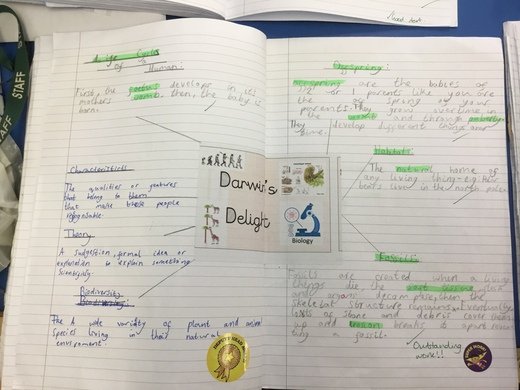 A life Cycle
of a Human:
First, the foetus develops in its
mothers womb. then, the baby is
born.
Characteristics
The qualities or features
that belong to them
that make these people
recognisable
Theory
A suggestion, formal idea or
explanation to explain something
Biodiversity
The A wide variety of plant and animal
species living in their natural
environment.
Darwin's
Delight
Biology
Offspring:
Offspring are the babies of
or parents like you are
the of spring of your
parents. They grow over time in
the and through puberty
They develop different things over
time.
Habitats
The natural home of
any living thing - e.g. Polar
bears live in the north pole.
Fossils
Fossils are created when a living
things die, the
and organs decompose, then the
skeletal structure remains. Eventually
lots of stone and debris cover them
up and erosion breaks it apart
a fossil.
Outstanding
work!!
STAFF